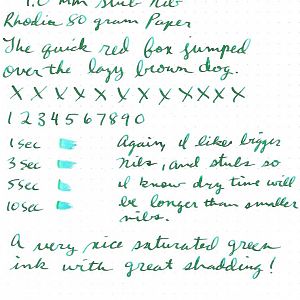 1.0 mm stub nib
Rhodia 80 gram Paper
The quick red fox jumped
over the lazy brown dog.
X X X X X X X X X X X X
1 2 3 4 5 6 7 8 9 0
1 sec
3 sec
5 sec
10 sec
Again, I like bigger
nibs, and stubs so
I know dry time will
be longer than smaller
nibs.
A very nice saturated green
ink with great shadding!